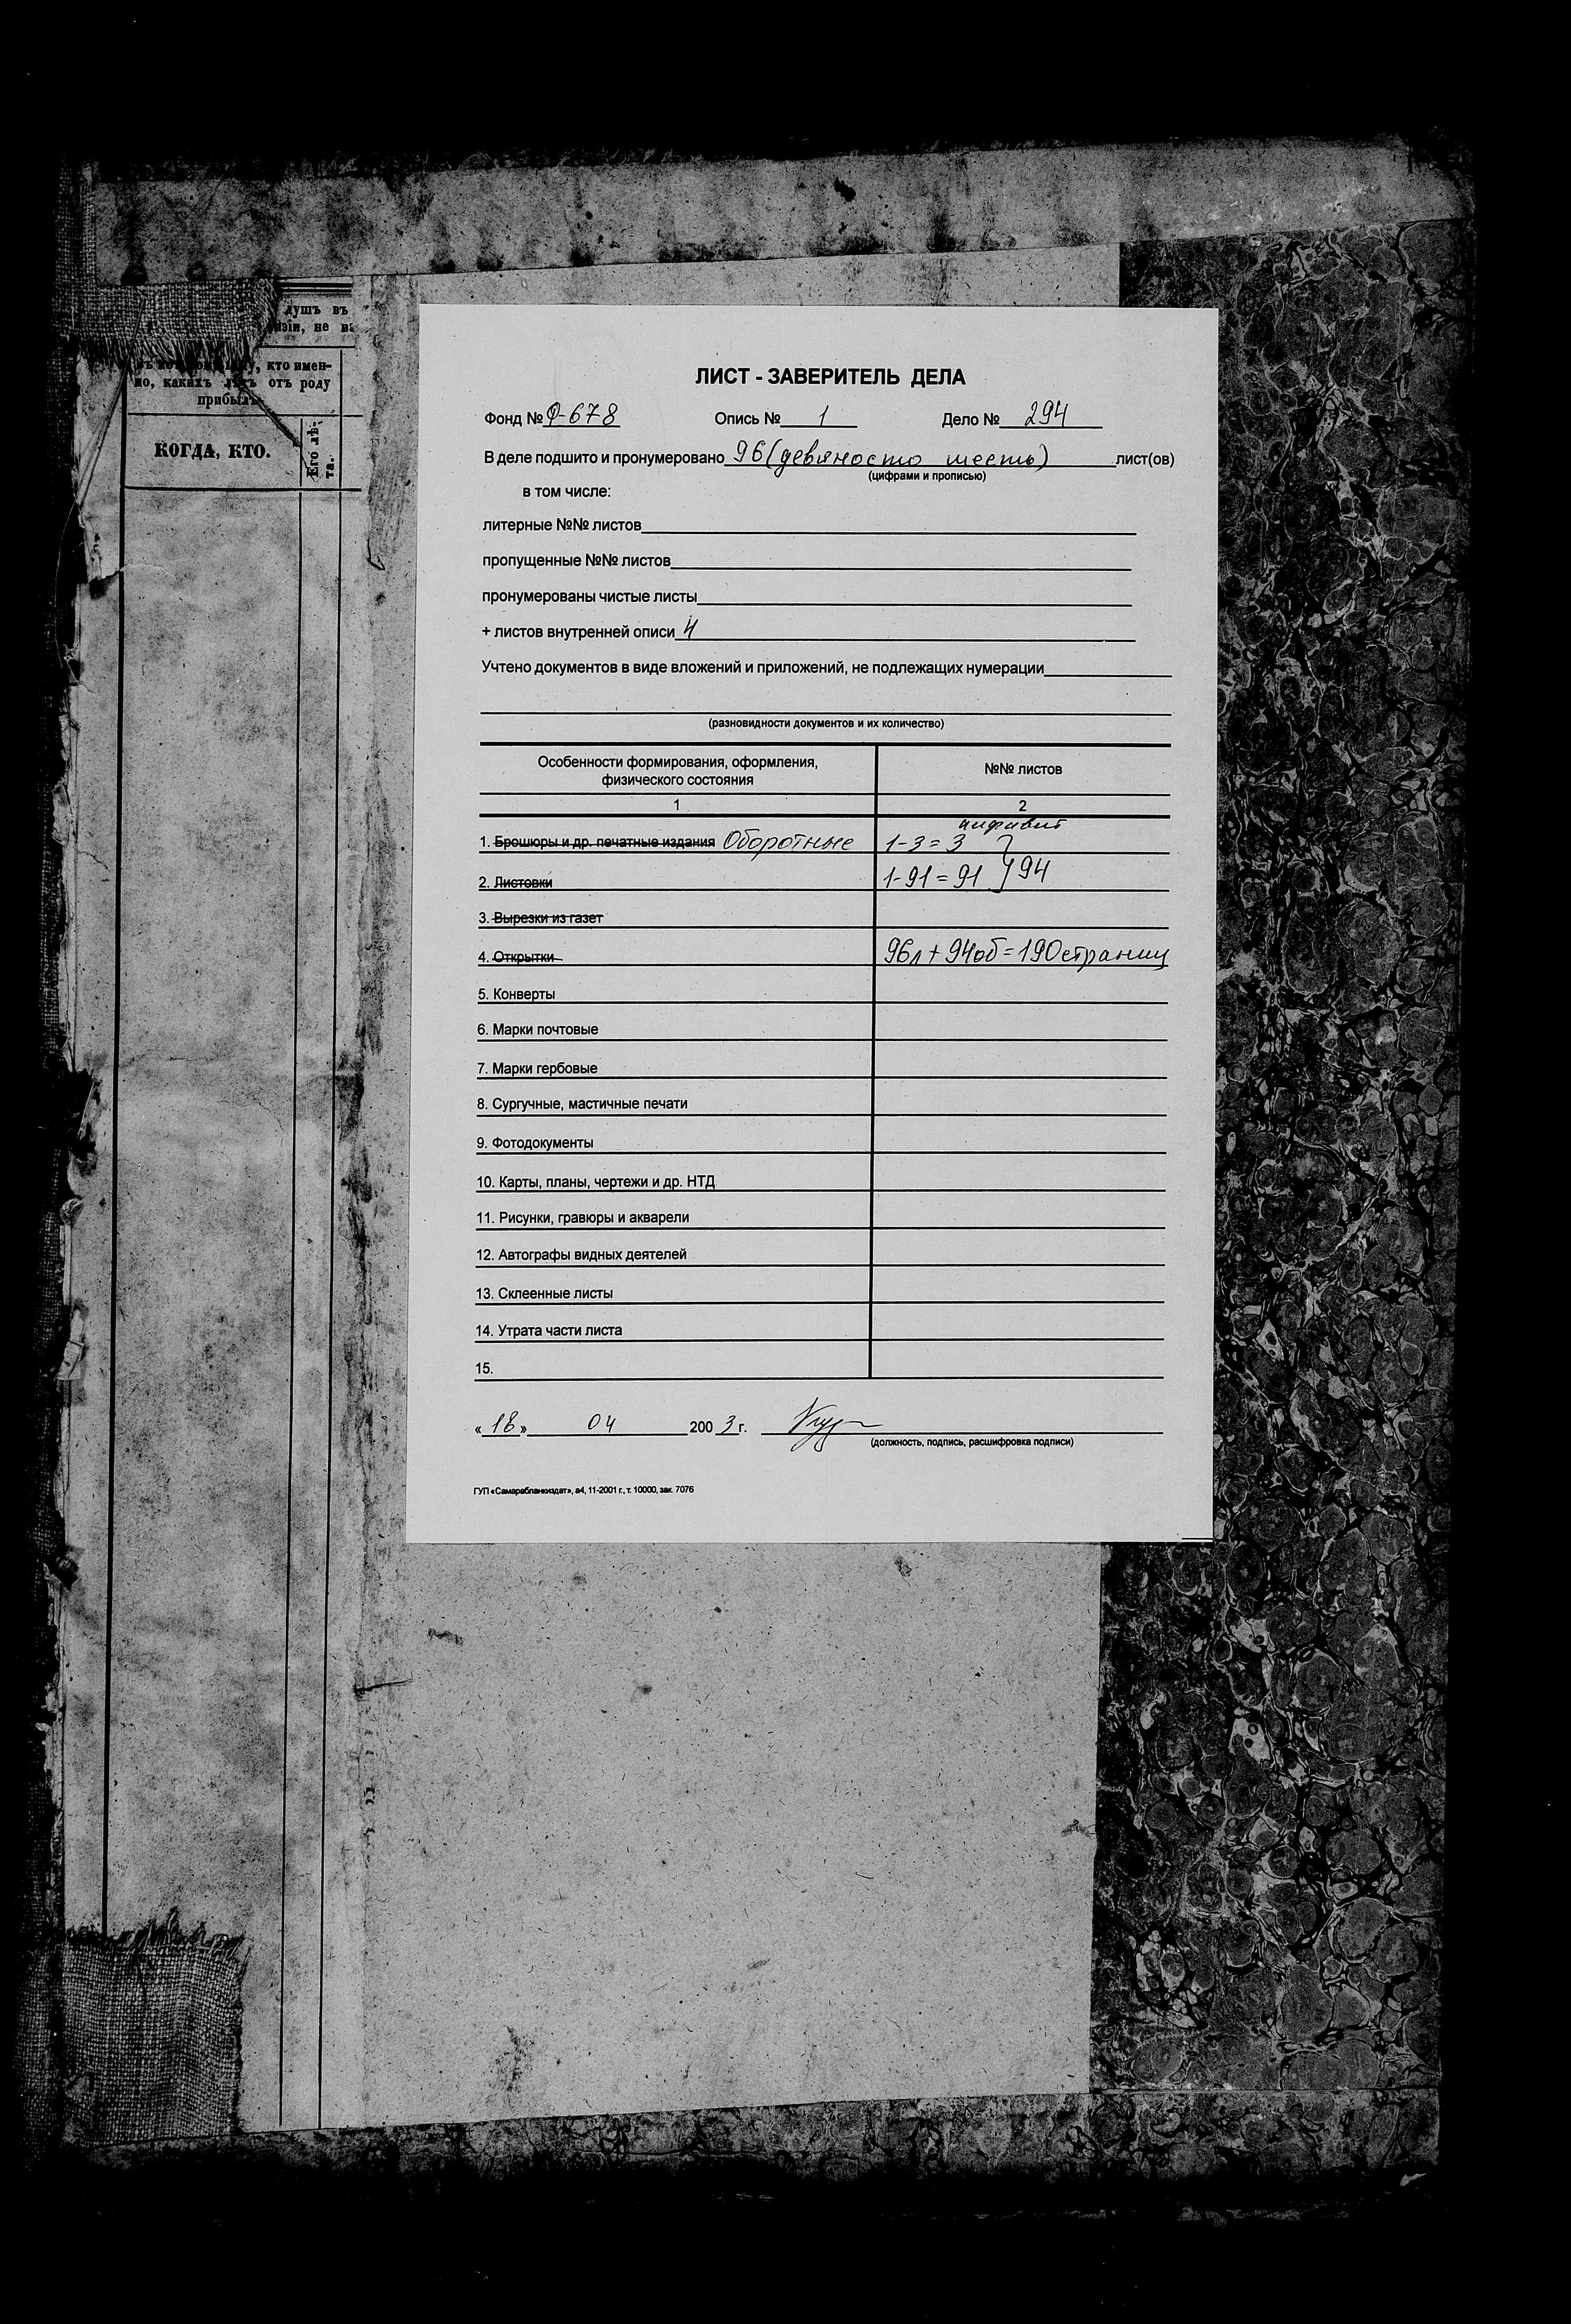 душъ въ
зіи, не
кто имен-
но, какихъ лѣтъ отъ роду
прибылъ
КОГДА, КТО.
Его лѣ-
та.
ЛИСТ - ЗАВЕРИТЕЛЬ ДЕЛА
Фонд № Ф-678 Опись № 1 Дело № 294
В деле подшито и пронумеровано 96 (девяносто шесть) лист(ов)
(цифрами и прописью)
в том числе:
литерные №№ листов
пропущенные №№ листов
пронумерованы чистые листы
+ листов внутренней описи 4
Учтено документов в виде вложений и приложений, не подлежащих нумерации
(разновидности документов и их количество)
Особенности формирования, оформления, №№ листов
физического состояния
1 2
алфавит
1. Брошюры и др. печатные издания Оборотные 1-3=3
2. Листовки 1-91=91 } 94
3. Вырезки из газет
4. Открытки 96л + 94об = 190 страниц
5. Конверты
6. Марки почтовые
7. Марки гербовые
8. Сургучные, мастичные печати
9. Фотодокументы
10. Карты, планы, чертежи и др. НТД
11. Рисунки, гравюры и акварели
12. Автографы видных деятелей
13. Склеенные листы
14. Утрата части листа
15.
« 18 » 04 200 3 г.
(должность, подпись, расшифровка подписи)
ГУП «Самарабланкиздат», а4, 11-2001 г., т. 10000, зак. 7076